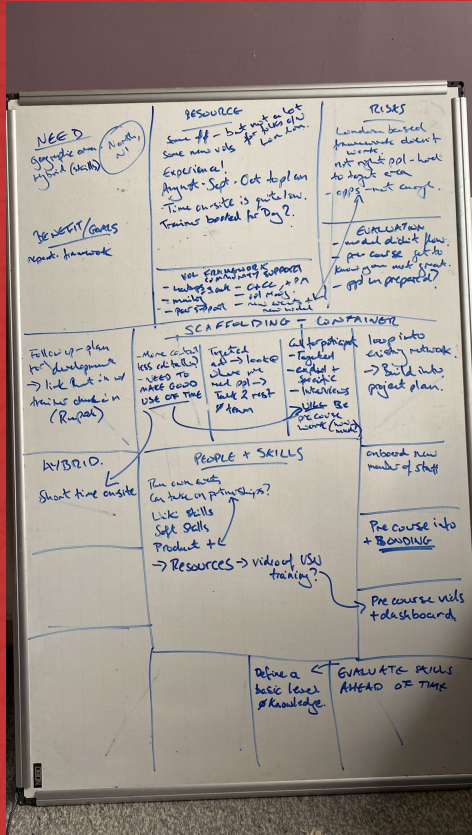 NEED
geographic area
Hybrid (skills)
North,
NI
BENEFIT/GOALS
repeat framework
RESOURCE
Some ff - but not a lot
Some new vols
Experience!
August - Sept - Oct to plan
Time on-site is quite low.
Trainer booked for Day 2.
RISKS
London based
framework doesn't
work.
not right ppl - hard
to target area
- apps - not enough.
EVALUATION
- model didn't flow.
- pre course get to
know you not great.
- ppl unprepared?
VOL FRAMEWORK
COMMUNITY SUPPORT
- monitor
- peer support
new model
SCAFFOLDING - CONTAINER
Follow up - plan
for development
→ link that in w/
trainer check in
(Rupal)
- More content
less editathon
- NEED TO
MAKE GOOD
USE OF TIME
Targeted
→ look @
where we
need ppl →
Train 2 rest
team
Call for participants
- Targeted
- explicit +
specific
- Interviews
- WILL BE
pre course
work
loop into
existing network.
→ Build into
project plan.
HYBRID.
Short time onsite
PEOPLE + SKILLS
Run own events
Can take on partnerships?
Wiki skills
Soft Skills
Product +
→ Resources → video of VSN
training?
onboard new
member of staff
Pre course info
+ BONDING
Pre course vids
+ dashboard
Define a
basic level
of knowledge.
EVALUATE SKILLS
AHEAD OF TIME